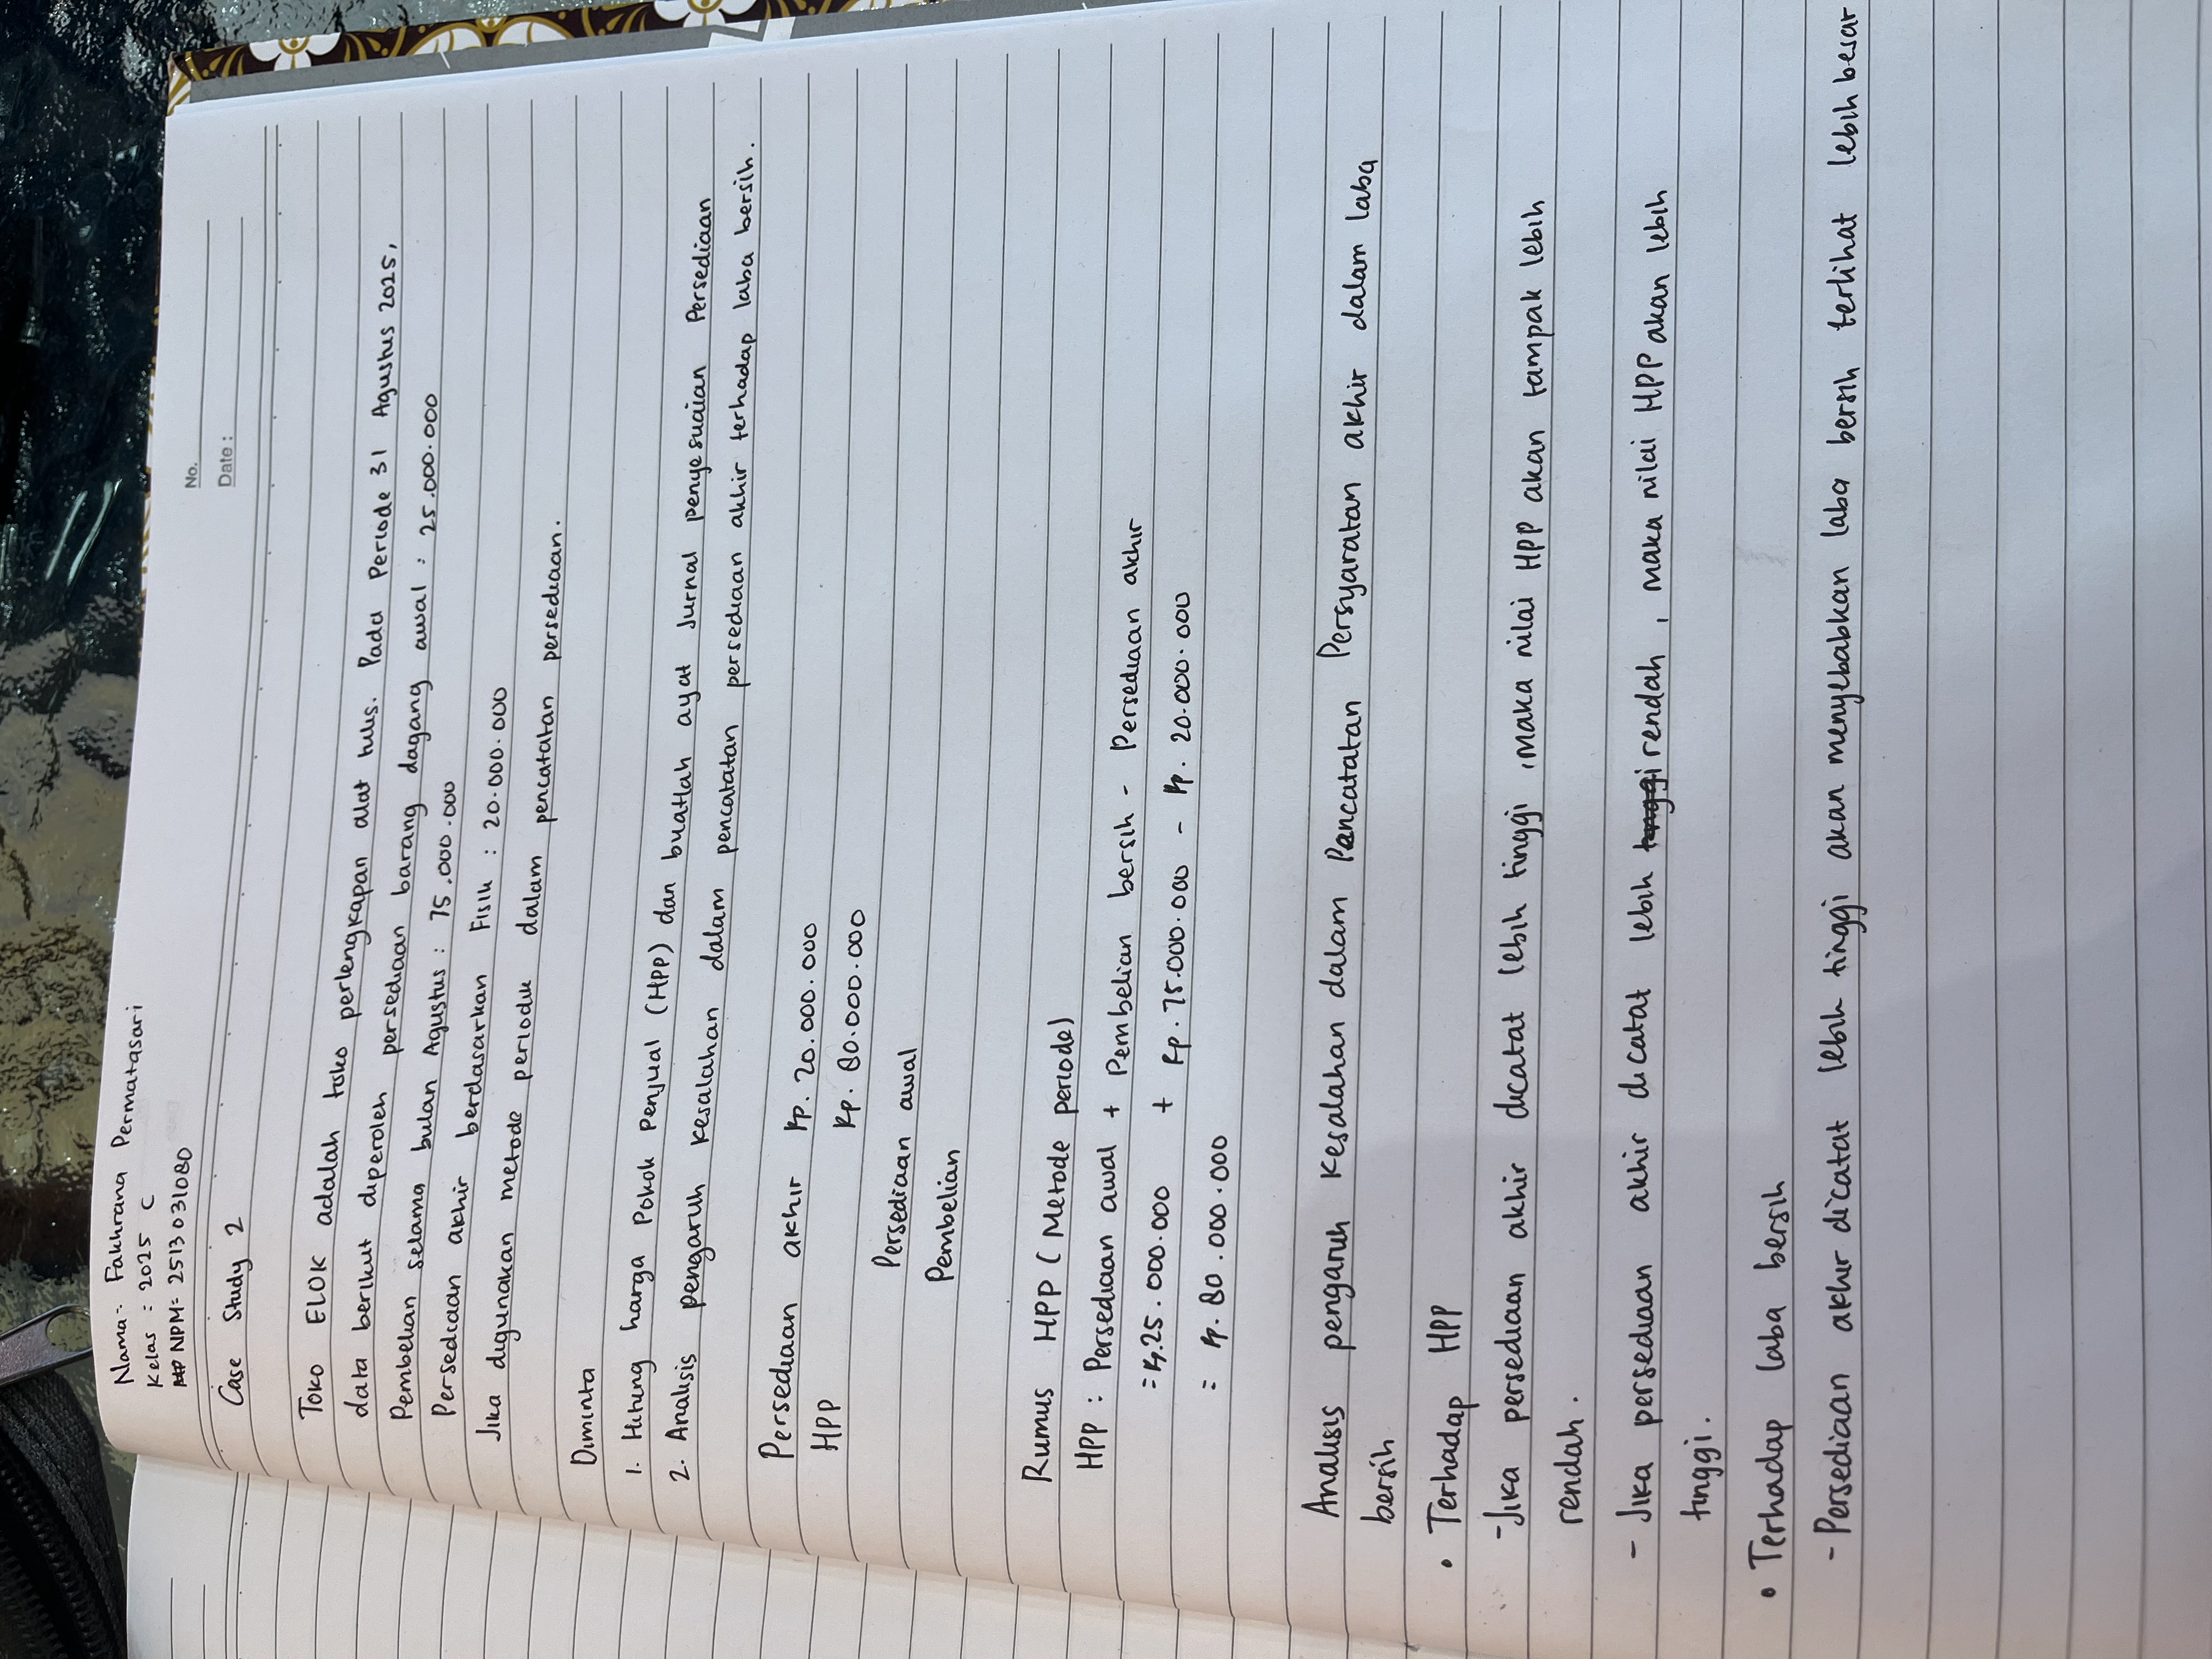 No.
Date:
Nama: Fakhrana Permatasari
Kelas : 2025 C
NPM= 2513031080
Case Study 2
Toko ELOK adalah toko perlengkapan alat tulis. Pada Periode 31 Agustus 2025,
data berikut diperoleh persediaan barang dagang awal : 25.000.000
Pembelian selama bulan Agustus : 75.000.000
Persediaan akhir berdasarkan Fisik : 20.000.000
Jika digunakan metode periodik dalam pencatatan persediaan.
Diminta
1. Hitung harga Pokok Penjual (HPP) dan buatlah ayat Jurnal penyesuaian Persediaan
2. Analisis pengaruh kesalahan dalam pencatatan persediaan akhir terhadap laba bersih.
Persediaan akhir Rp. 20.000.000
HPP Rp. 80.000.000
Persediaan awal
Pembelian
Rumus HPP (Metode periode)
HPP : Persediaan awal + Pembelian bersih - Persediaan akhir
= Rp.25.000.000 + Rp. 75.000.000 - Rp. 20.000.000
= Rp. 80.000.000
Analisis pengaruh kesalahan dalam Pencatatan Persyaratan akhir dalam laba
bersih
• Terhadap HPP
- Jika persediaan akhir dicatat lebih tinggi , maka nilai HPP akan tampak lebih
rendah.
- Jika persediaan akhir dicatat lebih tinggi rendah , maka nilai HPP akan lebih
tinggi.
• Terhadap laba bersih
- Persediaan akhir dicatat lebih tinggi akan menyebabkan laba bersih terlihat lebih besar